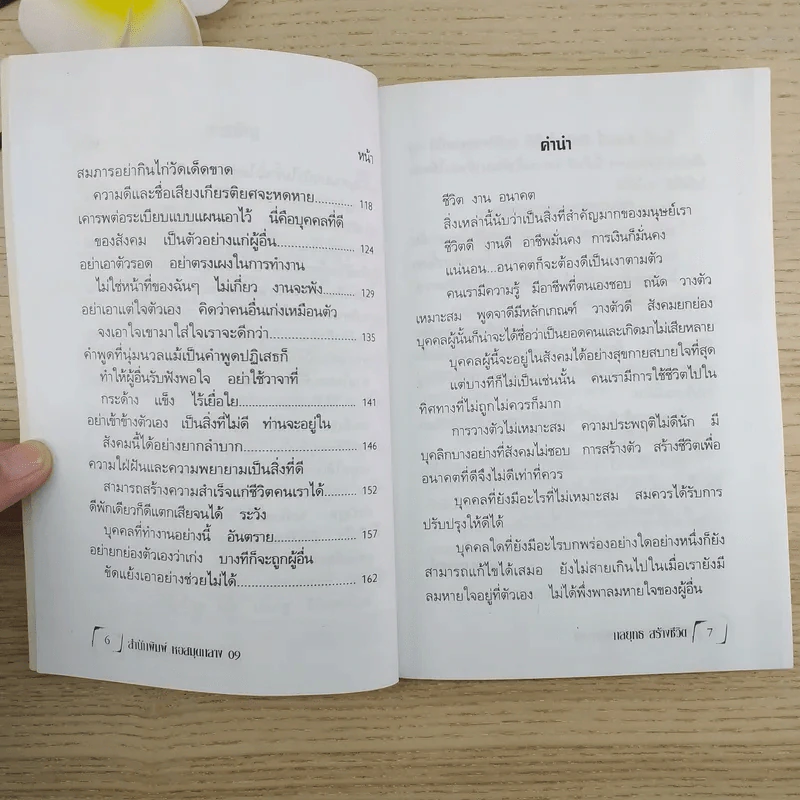 หน้า
สมภารอย่ากินไก่วัดเด็ดขาด
ความดีและชื่อเสียงเกียรติยศจะหดหาย.......... 118
เคารพต่อระเบียบแบบแผนเอาไว้ นี่คือบุคคลที่ดี
ของสังคม เป็นตัวอย่างแก่ผู้อื่น.......... 124
อย่าเอาตัวรอด อย่าตรงเผงในการทำงาน
ไม่ใช่หน้าที่ของฉันๆ ไม่เกี่ยว งานจะพัง.......... 129
อย่าเอาแต่ใจตัวเอง คิดว่าคนอื่นเก่งเหมือนตัว
จงเอาใจเขามาใส่ใจเราจะดีกว่า.......... 135
คำพูดที่นุ่มนวลแม้เป็นคำพูดปฏิเสธก็
ทำให้ผู้อื่นรับฟังพอใจ อย่าใช้วาจาที่
กระด้าง แข็ง ไร้เยื่อใย.......... 141
อย่าเข้าข้างตัวเอง เป็นสิ่งที่ไม่ดี ท่านจะอยู่ใน
สังคมนี้ได้อย่างยากลำบาก.......... 146
ความใฝ่ฝันและความพยายามเป็นสิ่งที่ดี
สามารถสร้างความสำเร็จแก่ชีวิตคนเราได้.......... 152
ดีพักเดียวก็ดีแตกเสียจนได้ ระวัง
บุคคลที่ทำงานอย่างนี้ อันตราย.......... 157
อย่ายกย่องตัวเองว่าเก่ง บางทีก็จะถูกผู้อื่น
ขัดแย้งเอาอย่างช่วยไม่ได้.......... 162
6 สำนักพิมพ์ หอสมุดกลาง 09
คำนำ
ชีวิต งาน อนาคต
สิ่งเหล่านี้นับว่าเป็นสิ่งที่สำคัญมากของมนุษย์เรา
ชีวิตดี งานดี อาชีพมั่นคง การเงินก็มั่นคง
แน่นอน...อนาคตก็จะต้องดีเป็นเงาตามตัว
คนเรามีความรู้ มีอาชีพที่ตนเองชอบ ถนัด วางตัว
เหมาะสม พูดจาดีมีหลักเกณฑ์ วางตัวดี สังคมยกย่อง
บุคคลผู้นั้นก็น่าจะได้ชื่อว่าเป็นยอดคนและเกิดมาไม่เสียหลาย
บุคคลผู้นี้จะอยู่ในสังคมได้อย่างสุขกายสบายใจที่สุด
แต่บางทีก็ไม่เป็นเช่นนั้น คนเรามีการใช้ชีวิตไปใน
ทิศทางที่ไม่ถูกไม่ควรก็มาก
การวางตัวไม่เหมาะสม ความประพฤติไม่ดีนัก มี
บุคลิกบางอย่างที่สังคมไม่ชอบ การสร้างตัว สร้างชีวิตเพื่อ
อนาคตที่ดีจึงไม่ดีเท่าที่ควร
บุคคลที่ยังมีอะไรที่ไม่เหมาะสม สมควรได้รับการ
ปรับปรุงให้ดีได้
บุคคลใดที่ยังมีอะไรบกพร่องอย่างใดอย่างหนึ่งก็ยัง
สามารถแก้ไขได้เสมอ ยังไม่สายเกินไปในเมื่อเรายังมี
ลมหายใจอยู่ที่ตัวเอง ไม่ได้พึ่งพาลมหายใจของผู้อื่น
กลยุทธ สร้างชีวิต 7